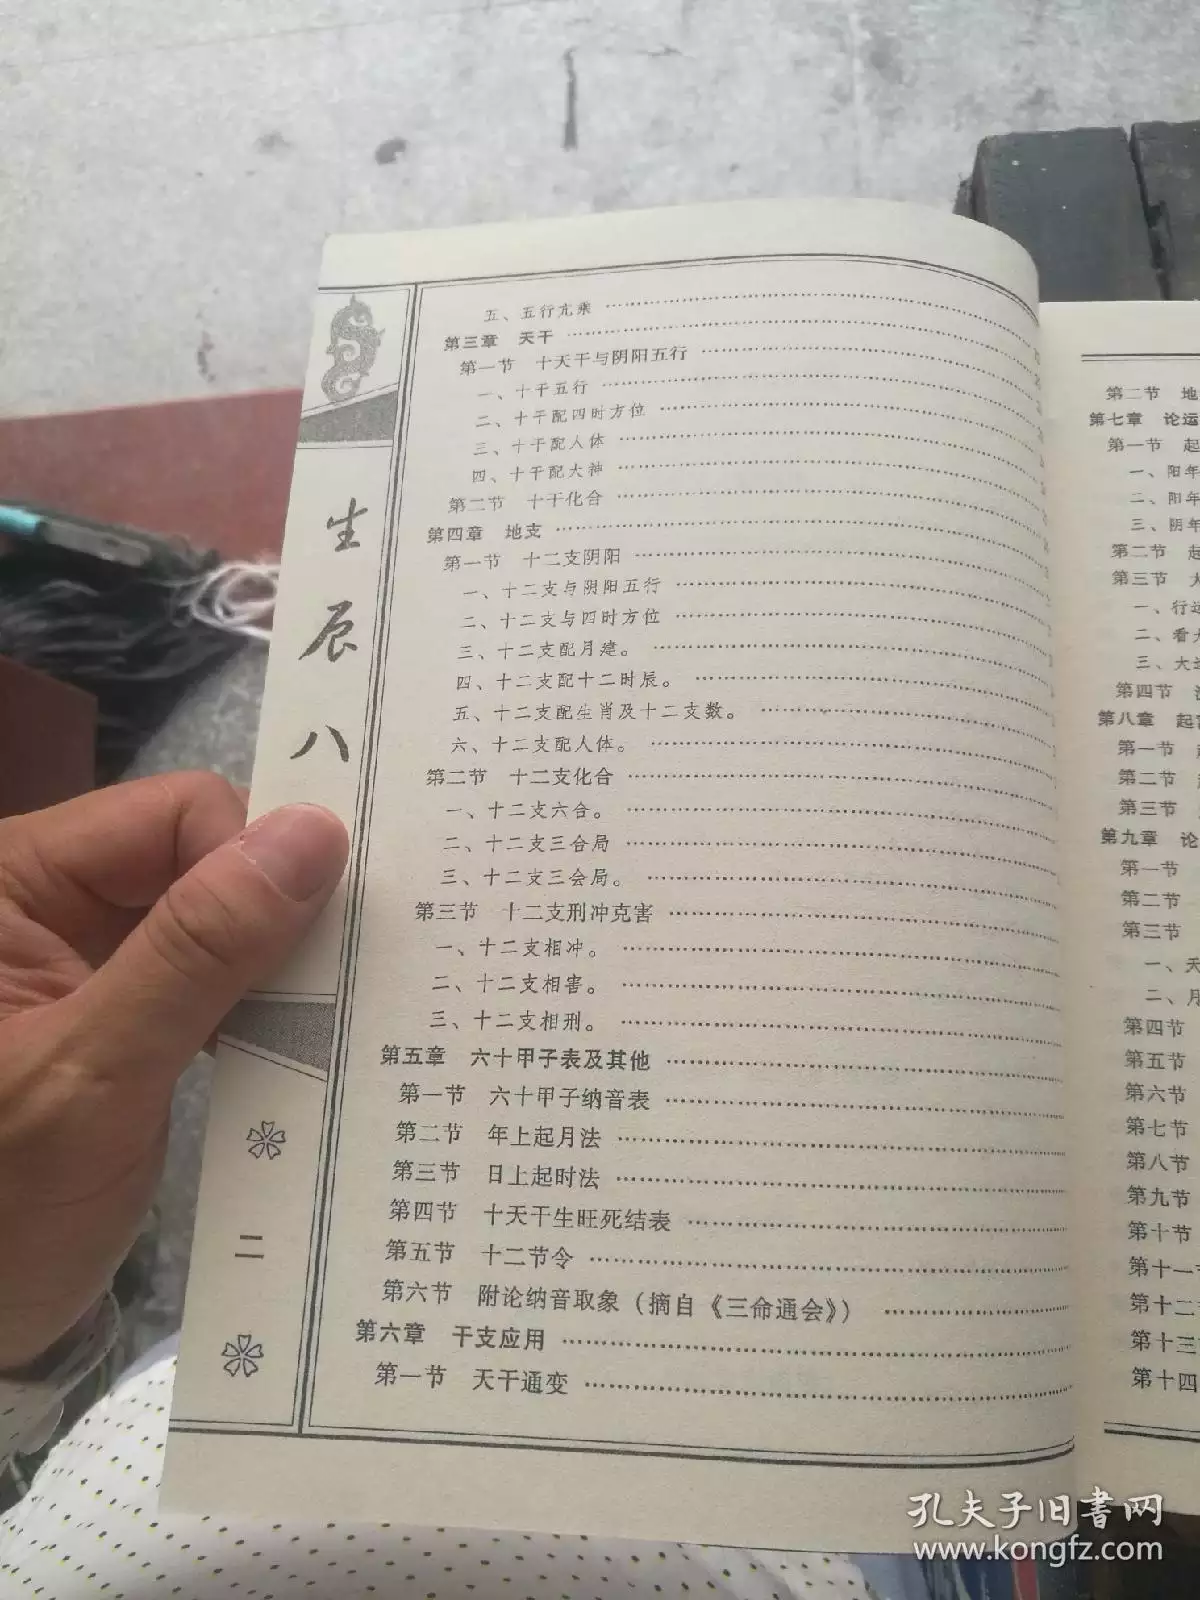 生辰八
二
五、五行亢乘
第三章 天干
第一节 十天干与阴阳五行
一、十干五行
二、十干配四时方位
三、十干配人体
四、十干配大神
第二节 十干化合
第四章 地支
第一节 十二支阴阳
一、十二支与阴阳五行
二、十二支与四时方位
三、十二支配月建。
四、十二支配十二时辰。
五、十二支配生肖及十二支数。
六、十二支配人体。
第二节 十二支化合
一、十二支六合。
二、十二支三合局
三、十二支三会局。
第三节 十二支刑冲克害
一、十二支相冲。
二、十二支相害。
三、十二支相刑。
第五章 六十甲子表及其他
第一节 六十甲子纳音表
第二节 年上起月法
第三节 日上起时法
第四节 十天干生旺死结表
第五节 十二节令
第六节 附论纳音取象（摘自《三命通会》）
第六章 干支应用
第一节 天干通变
第二节 地
第七章 论运
第一节 起
一、阳年
二、阳年
三、阴年
第二节 起
第三节 大
一、行运
二、看大
三、大运
第四节
第八章 起
第一节
第二节
第三节
第九章 论
第一节
第二节
第三节
一、天
二、月
第四节
第五节
第六节
第七节
第八节
第九节
第十节
第十一节
第十二
第十三
第十四
孔夫子旧書网
www.kongfz.com